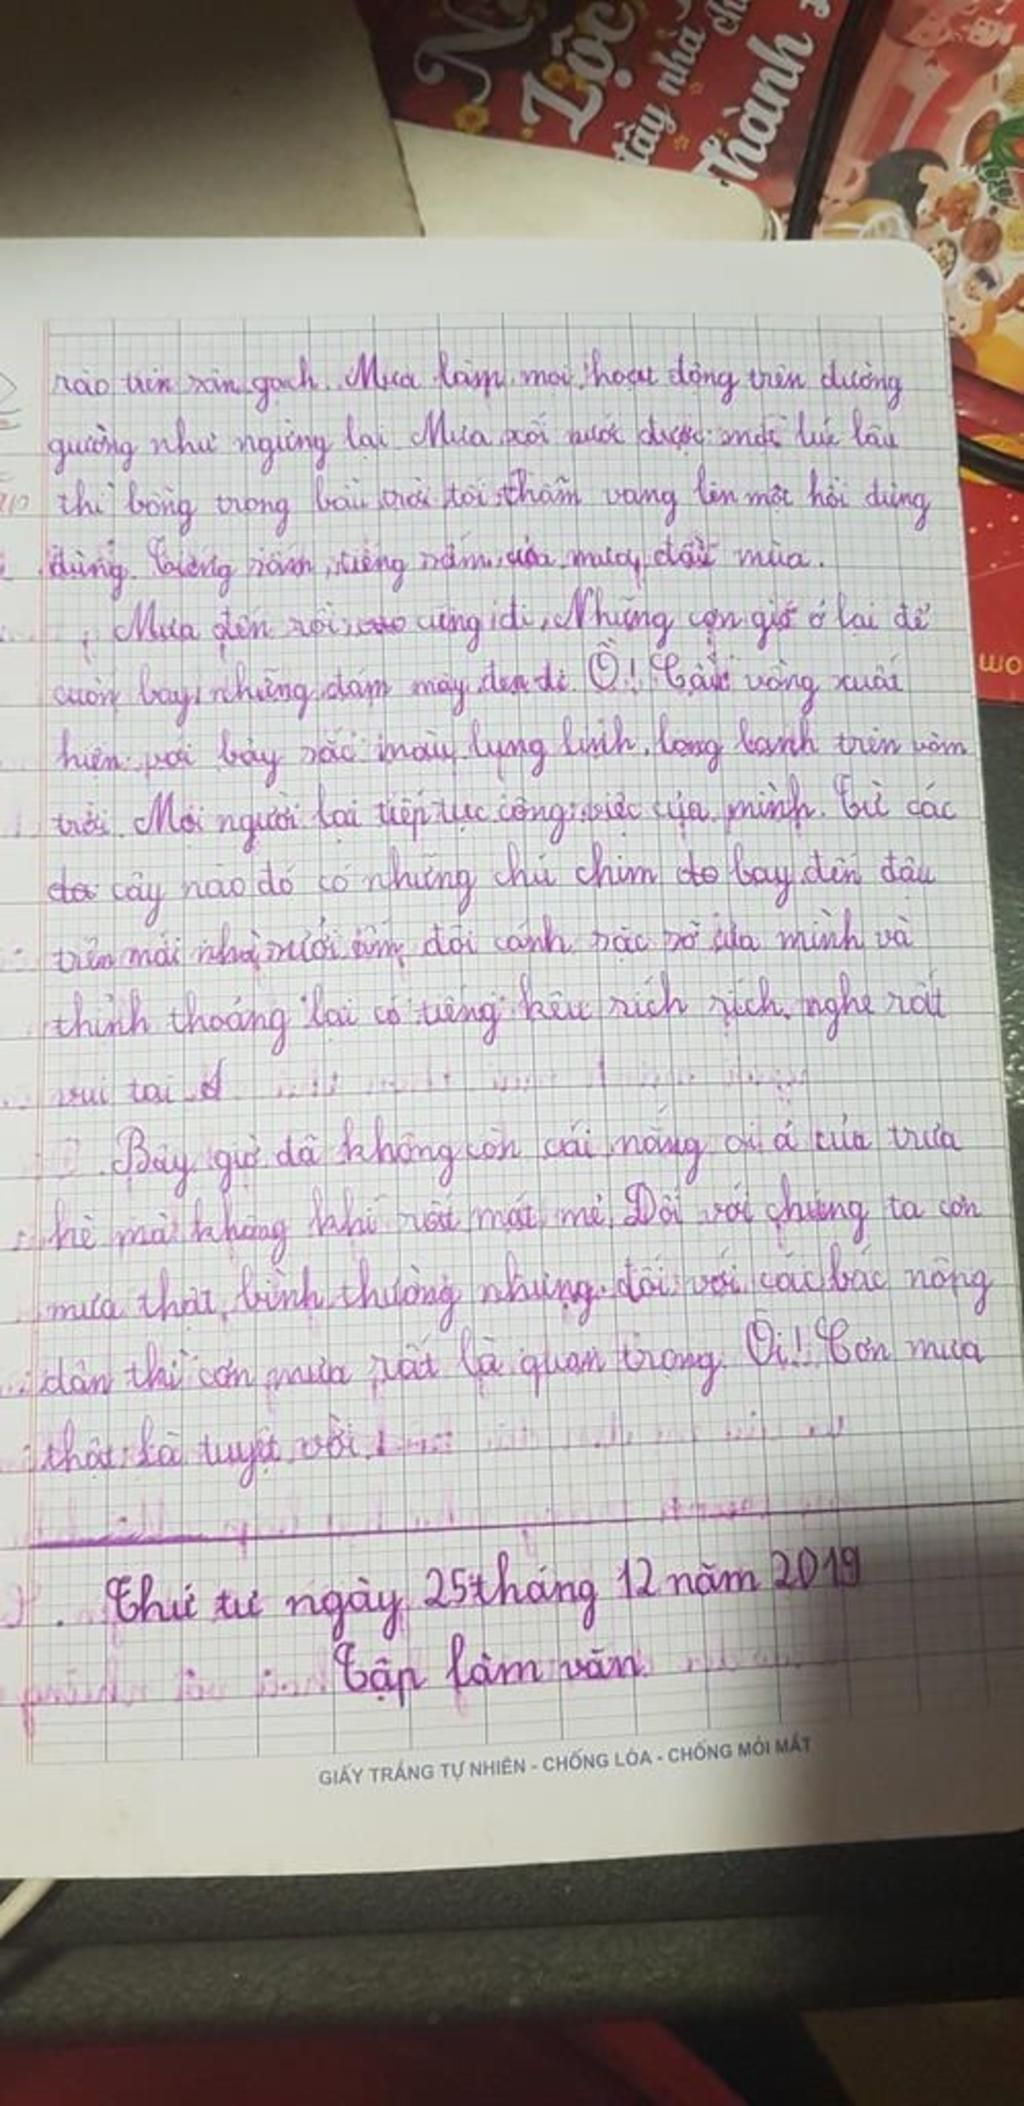 Lộc
tấy nhà
Thành
rào trên sân gạch. Mưa làm mọi hoạt động trên đường
gường như ngừng lại. Mưa xối nước được một lúc lâu
thì bỗng trong bầu trời tối thẫm vang lên một hồi đùng
đùng. Tiếng sấm của mưa đầu mùa.
Mưa đến rồi cũng đi. Những cơn gió ở lại để
cuốn bay những đám mây đen đi. Ồ! Cầu vồng xuất
hiện với bảy sắc màu lung linh, long lanh trên vòm
trời. Mọi người lại tiếp tục công việc của mình. Từ các
cây nào đó có những chú chim bay đến đậu
trên mái nhà sưởi ấm đôi cánh sặc sỡ của mình và
thỉnh thoảng lại có tiếng kêu rích rích nghe rất
vui tai
Bây giờ đã không còn cái nóng oi ả của trưa
hè mà không khí rất mát mẻ. Đối với chúng ta cơn
mưa thật bình thường nhưng đối với các bác nông
dân thì cơn mưa rất là quan trọng. Ôi! Cơn mưa
thật là tuyệt vời!
Thứ tư ngày 25 tháng 12 năm 2019
Tập làm văn
GIẤY TRẮNG TỰ NHIÊN - CHỐNG LÓA - CHỐNG MỎI MẮT